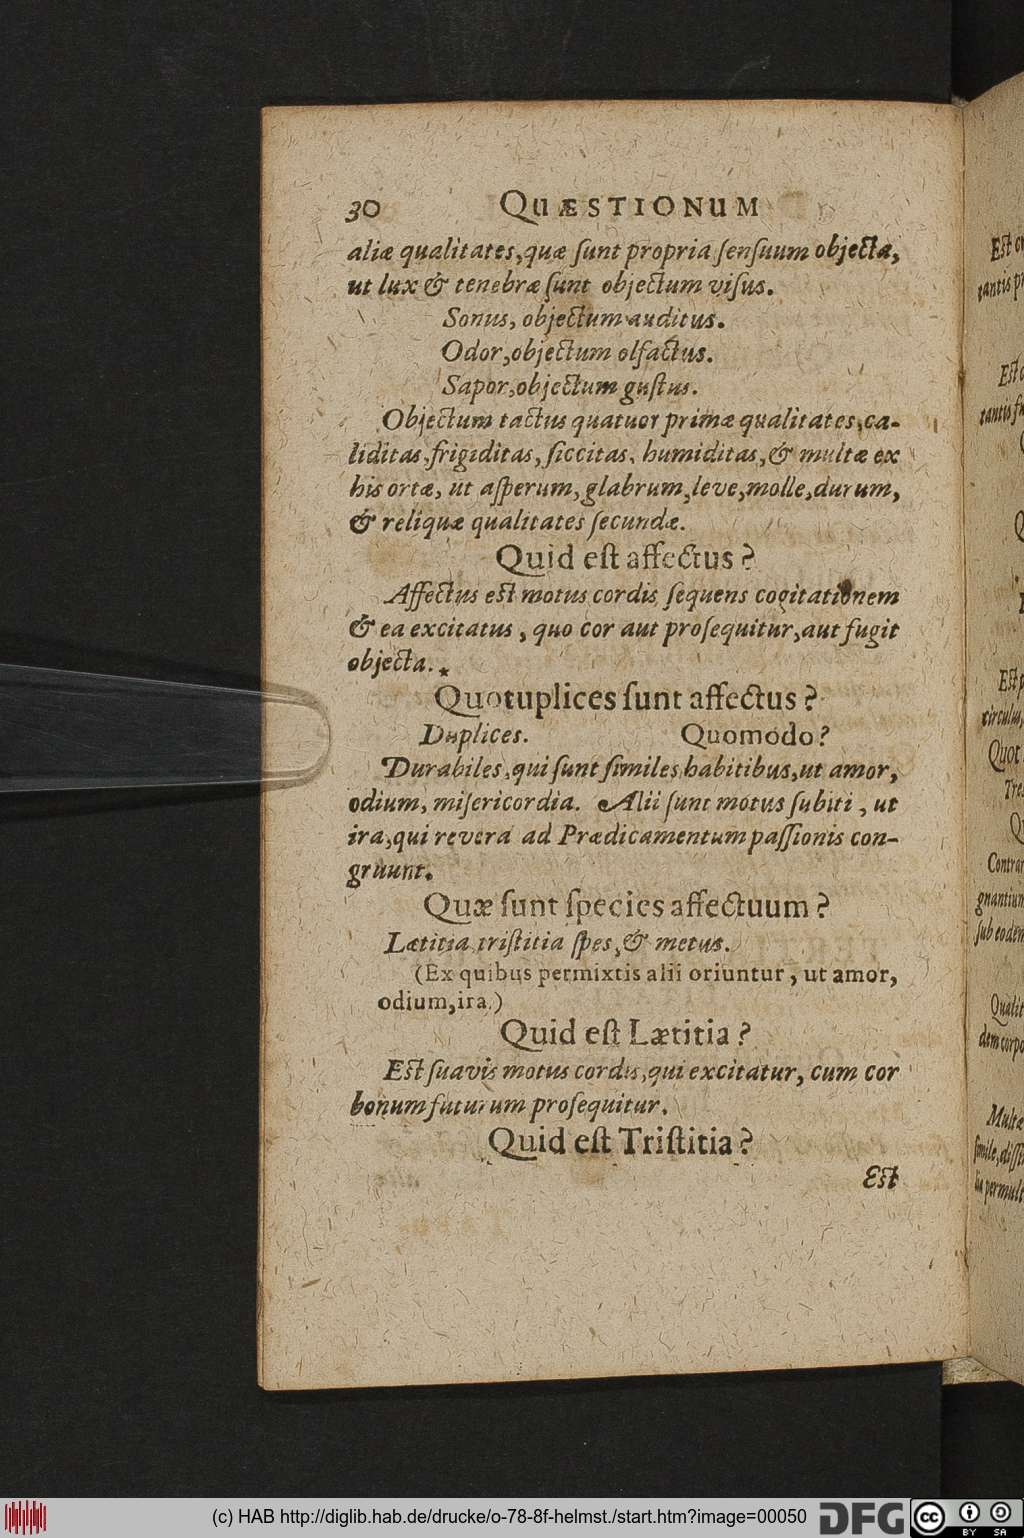 30 QUÆSTIONUM
aliæ qualitates, quæ ſunt propria ſenſuum objecta,
ut lux & tenebræ ſunt objectum viſus.
Sonus, objectum auditus.
Odor, objectum olfactus.
Sapor, objectum guſtus.
Objectum tactus quatuor primæ qualitates, ca-
liditas, frigiditas, ſiccitas, humiditas, & multæ ex
his ortæ, ut aſperum, glabrum, leve, molle, durum,
& reliquæ qualitates ſecundæ.
Quid eſt affectus?
Affectus eſt motus cordis ſequens cogitationem
& ea excitatus, quo cor aut proſequitur, aut fugit
objecta.
Quotuplices ſunt affectus?
Duplices. Quomodo?
Durabiles, qui ſunt ſimiles habitibus, ut amor,
odium, miſericordia. Alii ſunt motus ſubiti, ut
ira, qui revera ad Prædicamentum paſſionis con-
gruunt.
Quæ ſunt ſpecies affectuum?
Lætitia, triſtitia ſpes, & metus.
(Ex quibus permixtis alii oriuntur, ut amor,
odium, ira.)
Quid eſt Lætitia?
Eſt ſuavis motus cordis, qui excitatur, cum cor
bonum futurum proſequitur.
Quid eſt Triſtitia?
Eſt
(c) HAB http://diglib.hab.de/drucke/o-78-8f-helmst./start.htm?image=00050
DFG
cc
BY SA